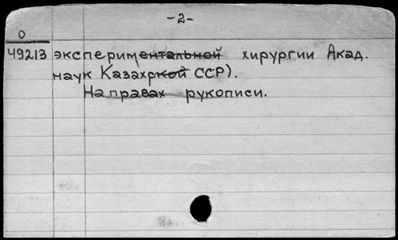 -2-
О
49213 экспериментальной хирургии Акад.
наук Казахской ССР).
На правах рукописи.